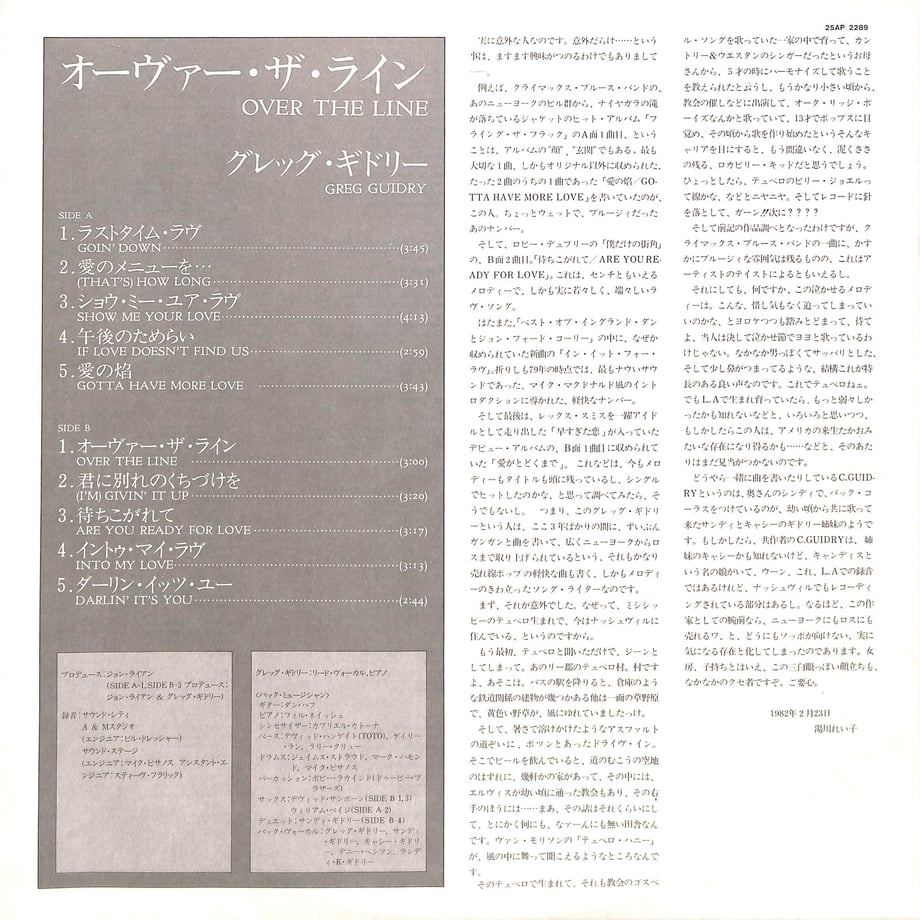 25AP 2289
オーヴァー・ザ・ライン
OVER THE LINE
グレッグ・ギドリー
GREG GUIDRY
SIDE A
1.ラストタイム・ラヴ
GOIN' DOWN (3:45)
2.愛のメニューを…
(THAT'S) HOW LONG (3:31)
3.ショウ・ミー・ユア・ラヴ
SHOW ME YOUR LOVE (4:13)
4.午後のためらい
IF LOVE DOESN'T FIND US (2:59)
5.愛の焰
GOTTA HAVE MORE LOVE (3:43)
SIDE B
1.オーヴァー・ザ・ライン
OVER THE LINE (3:00)
2.君に別れのくちづけを
(I'M) GIVIN' IT UP (3:20)
3.待ちこがれて
ARE YOU READY FOR LOVE (3:17)
4.イントゥ・マイ・ラヴ
INTO MY LOVE (3:13)
5.ダーリン・イッツ・ユー
DARLIN' IT'S YOU (2:44)
プロデュース:ジョン・ライアン
(SIDE A-1, SIDE B-3 プロデュース:
ジョン・ライアン & グレッグ・ギドリー)
録音:サウンド・シティ
A & Mスタジオ
(エンジニア:ビル・ドレッシャー)
サウンド・ステージ
(エンジニア:マイク・ピサノス アシスタント・エ
ンジニア:スティーヴ・フラリック)
グレッグ・ギドリー:リード・ヴォーカル, ピアノ
〈バック・ミュージシャン〉
ギター:ダン・ハフ
ピアノ:フィル・ネイッシュ
シンセサイザー:ガブリエル・カトーナ
ベース:デヴィッド・ハンゲイト(TOTO), ゲイリー
・ラン, ラリー・クリュー
ドラムス:ジェイムス・ストラウド, マーク・ハモン
ド, マイク・ピサノス
パーカッション:ボビー・ラカインド(ドゥービー・ブ
ラザーズ)
サックス:デヴィッド・サンボーン(SIDE B 1, 3)
ウィリアム・ペイジ(SIDE A-2)
デュエット:サンディ・ギドリー(SIDE B 4)
バック・ヴォーカル:グレッグ・ギドリー, サンディ
・ギドリー, キャシー・ギドリ
ー, デニー・ヘンソン, ランデ
ィ・K・ギドリー
実に意外な人なのです。意外だらけ……という
事は、ますます興味がつのるわけでもありまして
──。
例えば、クライマックス・ブルース・バンドの、
あのニューヨークのビル群から、ナイヤガラの滝
が落ちているジャケットのヒット・アルバム「フ
ライング・ザ・フラッグ」のA面1曲目、という
ことは、アルバムの"顔"、"玄関"でもある、最も
大切な1曲、しかもオリジナル以外に収められた、
たった2曲のうちの1曲であった「愛の焰/GO-
TTA HAVE MORE LOVE」を書いていたのが、
この人。ちょっとウェットで、ブルージィだった
あのナンバー。
そして、ロビー・デュプリーの「僕だけの街角」
の、B面2曲目。「待ちこがれて/ARE YOU RE-
ADY FOR LOVE」。これは、センチともいえる
メロディーで、しかも実に若々しく、端々しいラ
ヴ・ソング。
はたまた、「ベスト・オブ・イングランド・ダン
とジョン・フォード・コーリー」の中に、なぜか
収められていた新曲の「イン・イット・フォー・
ラヴ」。折りしも79年の時点では、最もナウいサウ
ンドであった、マイク・マクドナルド風のイント
ロダクションに導かれた、軽快なナンバー。
そして最後は、レックス・スミスを一躍アイド
ルとして走り出した「早すぎた恋」が入っていた
デビュー・アルバムの、B面1曲目に収められて
いた「愛がとどくまで」。これなどは、今もメロ
ディーもタイトルも頭に残っているし、シングル
でヒットしたのかな、と思って調べてみたら、そ
うでもないし。 つまり、このグレッグ・ギドリ
ーという人は、ここ3年ばかりの間に、ずいぶん
ガンガンと曲を書いて、広くニューヨークからロ
スまで取り上げられているという、それもかなり
売れ線ポップの軽快な曲も書く、しかもメロディ
ーのきわ立ったソング・ライターなのです。
まず、それが意外でした。なぜって、ミシシッ
ピーのテュペロ生まれで、今はナッシュヴィルに
住んでいる、というのですから。
もう最初、テュペロと聞いただけで、ジーンと
してしまって。あのリー郡のテュペロ村。村です
よ、あそこは。バスの駅を降りると、倉庫のよう
な鉄道関係の建物が幾つかある他は一面の草野原
で、黄色い野草が、風にゆれていましたっけ。
そして、暑さで溶けかけたようなアスファルト
の道ぞいに、ポツンとあったドライヴ・イン。
そこでビールを飲んでいると、道のむこうの空地
のはずれに、幾軒かの家があって、その中には、
エルヴィスが幼い頃に通った教会もあり、その右
手のほうには……まあ、その話はそれくらいにし
て、とにかく何にも、なァーんにも無い田舎なん
です。ヴァン・モリソンの「テュペロ・ハニー」
が、風の中に舞って聞こえるようなところなんで
す。
そのテュペロで生まれて、それも教会のゴスペ
ル・ソングを歌っていた一家の中で育って、カン
トリー&ウエスタンのシンガーだったというお母
さんから、5才の時にハーモナイズして歌うこと
を教えられたと云うし、もうかなり小さい頃から、
教会の催しなどに出演して、オーク・リッジ・ボ
ーイズなんかと歌っていて、13才でポップスに目
覚め、その頃から歌を作り始めたというそんなキ
ャリアを目にすると、もう間違いなく、泥くささ
の残る、ロカビリー・キッドだと思うでしょう。
ひょっとしたら、テュペロのビリー・ジョエルっ
て線かな、などとニヤニヤ。そしてレコードに針
を落として、ガーン!!次に????
そして前記の作品調べとなったわけですが、ク
ライマックス・ブルース・バンドの一曲に、かす
かにブルージィな雰囲気は残るものの、これはア
ーティストのテイストによるともいえるし。
それにしても、何ですか、この泣かせるメロデ
ィーは。こんな、惜し気もなく迫ってしまってい
いのかな、とヨロケつつも踏みとどまって、待て
よ、当人は決して泣かせ節でヨヨと歌っているわ
けじゃない。なかなか男っぽくてサッパリとした、
そして少し鼻がつまってるような、結構これが特
長のある良い声なのです。これでテュペロねェ。
でもL.Aで生まれ育っていたら、もっと弱々しか
ったかも知れないなどと、いろいろと思いつつ、
もしかしたらこの人は、アメリカの来生たかおみ
たいな存在になり得るかも……などと、そのあた
りはまだ見当がつかないのです。
どうやら一緒に曲を書いたりしているC.GUID-
RYというのは、奥さんのシンディで、バック・コ
ーラスをつけているのが、幼い頃から共に歌って
来たサンディとキャシーのギドリー姉妹のようで
す。もしかしたら、共作者のC.GUIDRYは、姉
妹のキャシーかも知れないけど、キャンディスと
いう名の娘がいて、ウーン、これ、L.Aでの録音
ではあるけれど、ナッシュヴィルでもレコーディ
ングされている部分はあるし。なるほど、この作
家としての腕前なら、ニューヨークにもロスにも
売れるワ、と、どうにもソッポが向けない、実に
気になる存在と化してしまったのであります。女
房、子持ちとはいえ、この三白眼っぽい顔立ちも、
なかなかのクセ者ですぞ。ご要心。
1982年2月23日
湯川れい子